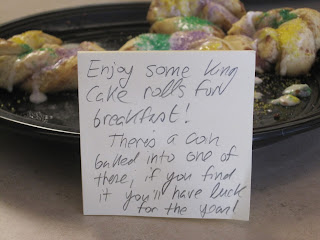 Enjoy some King
Cake rolls for
breakfast!
There's a coin
baked into one of
these, if you find
it you'll have luck
for the year!